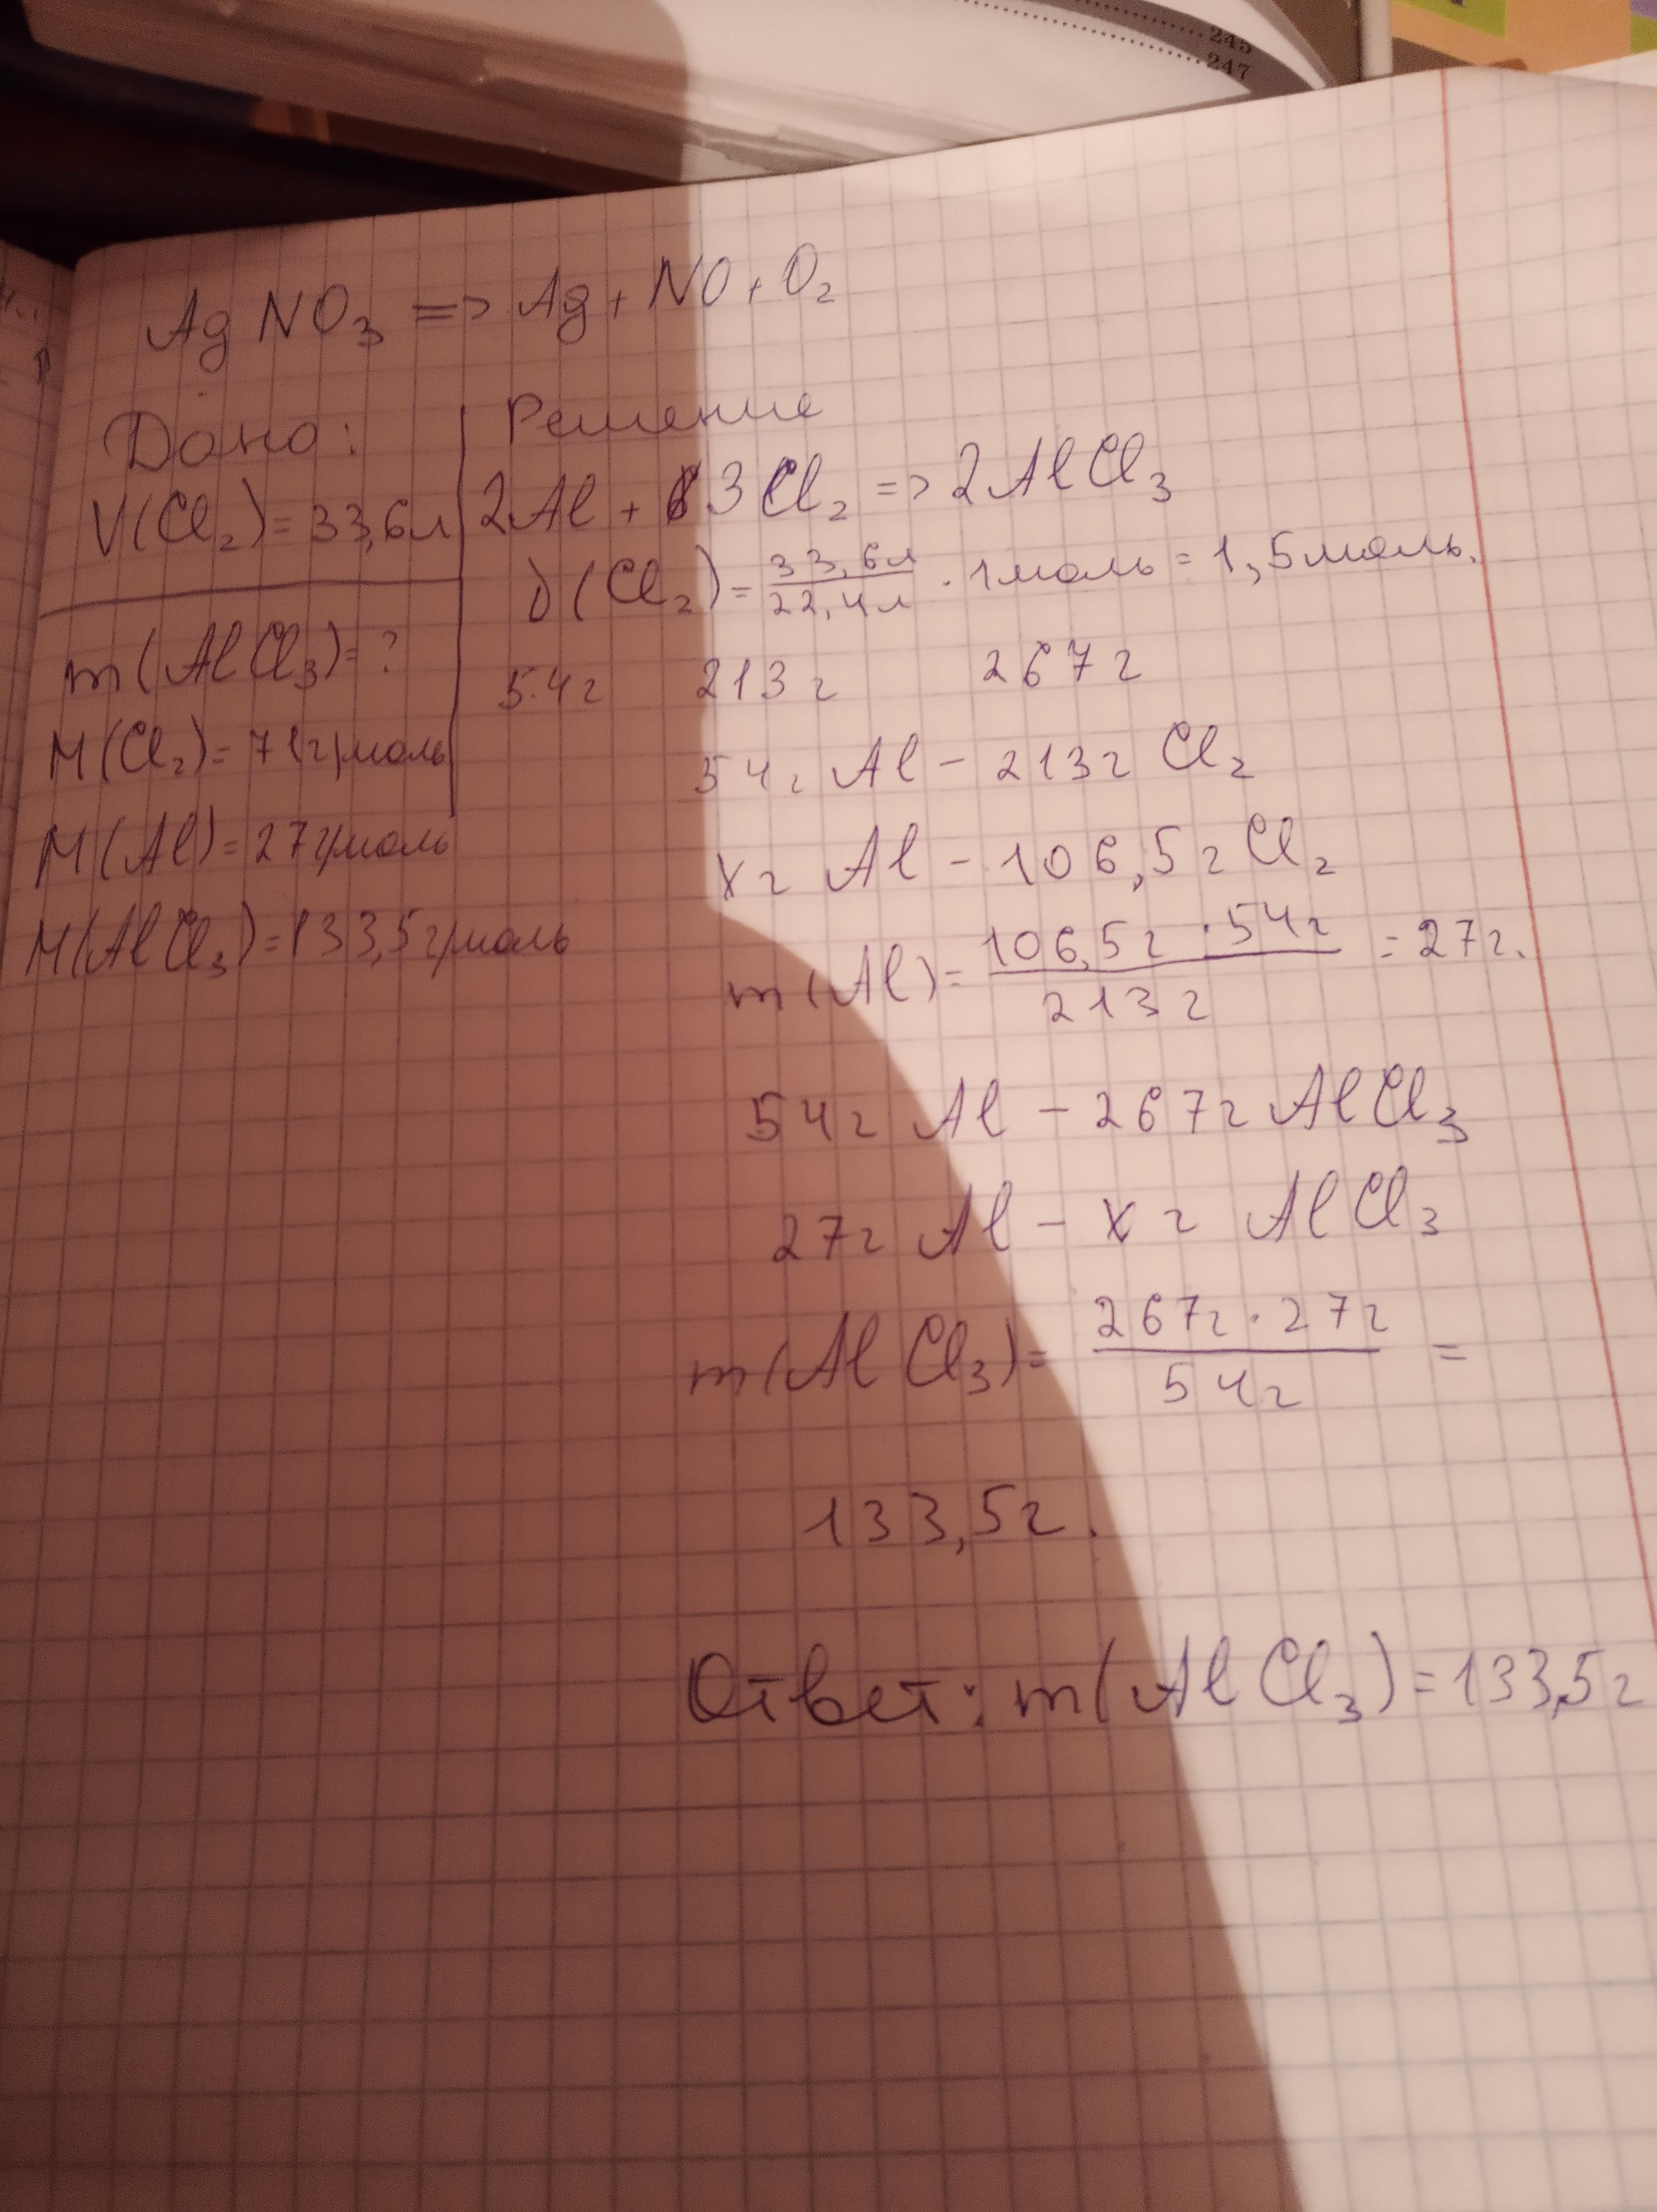 245
247
AgNO₃ => Ag + NO + O₂
Дано:
V(Cl₂) = 33,6л
m(AlCl₃) = ?
M(Cl₂) = 71г/моль
M(Al) = 27г/моль
M(AlCl₃) = 133,5г/моль
Решение
2Al + 3Cl₂ => 2AlCl₃
ν(Cl₂) = 33,6л / 22,4л · 1моль = 1,5моль.
54г 213г 267г
54г Al – 213г Cl₂
xг Al – 106,5г Cl₂
m(Al) = 106,5г · 54г / 213г = 27г.
54г Al – 267г AlCl₃
27г Al – xг AlCl₃
m(AlCl₃) = 267г · 27г / 54г =
133,5г.
Ответ: m(AlCl₃) = 133,5г